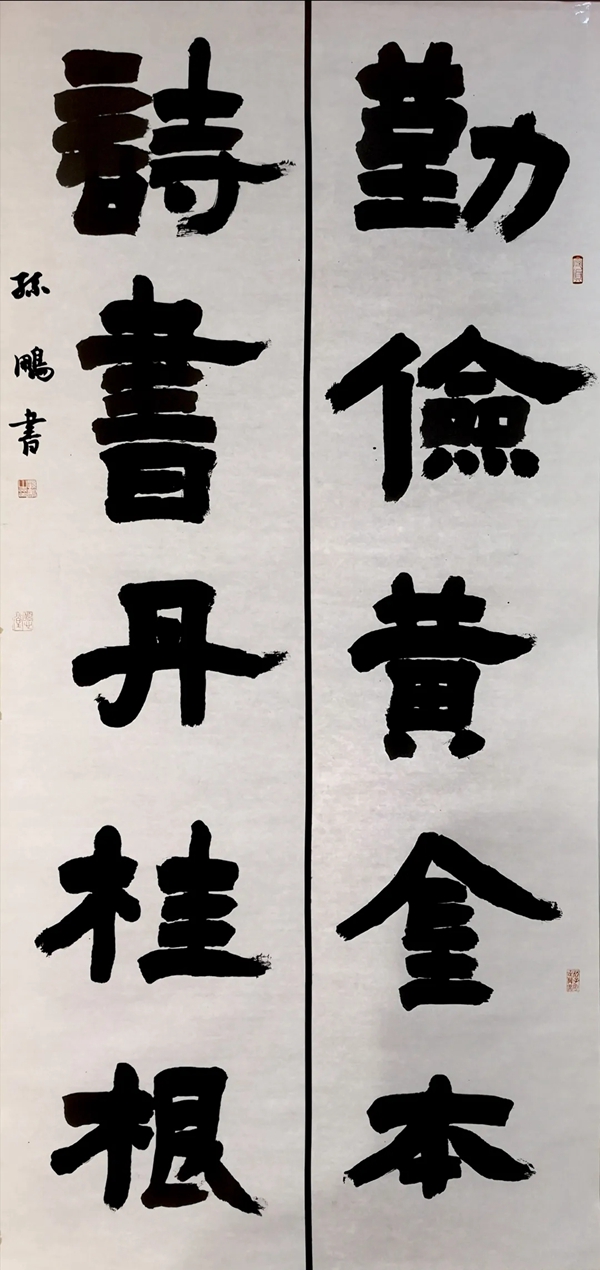 勤儉黃金本
詩書丹桂根
孫鵬書